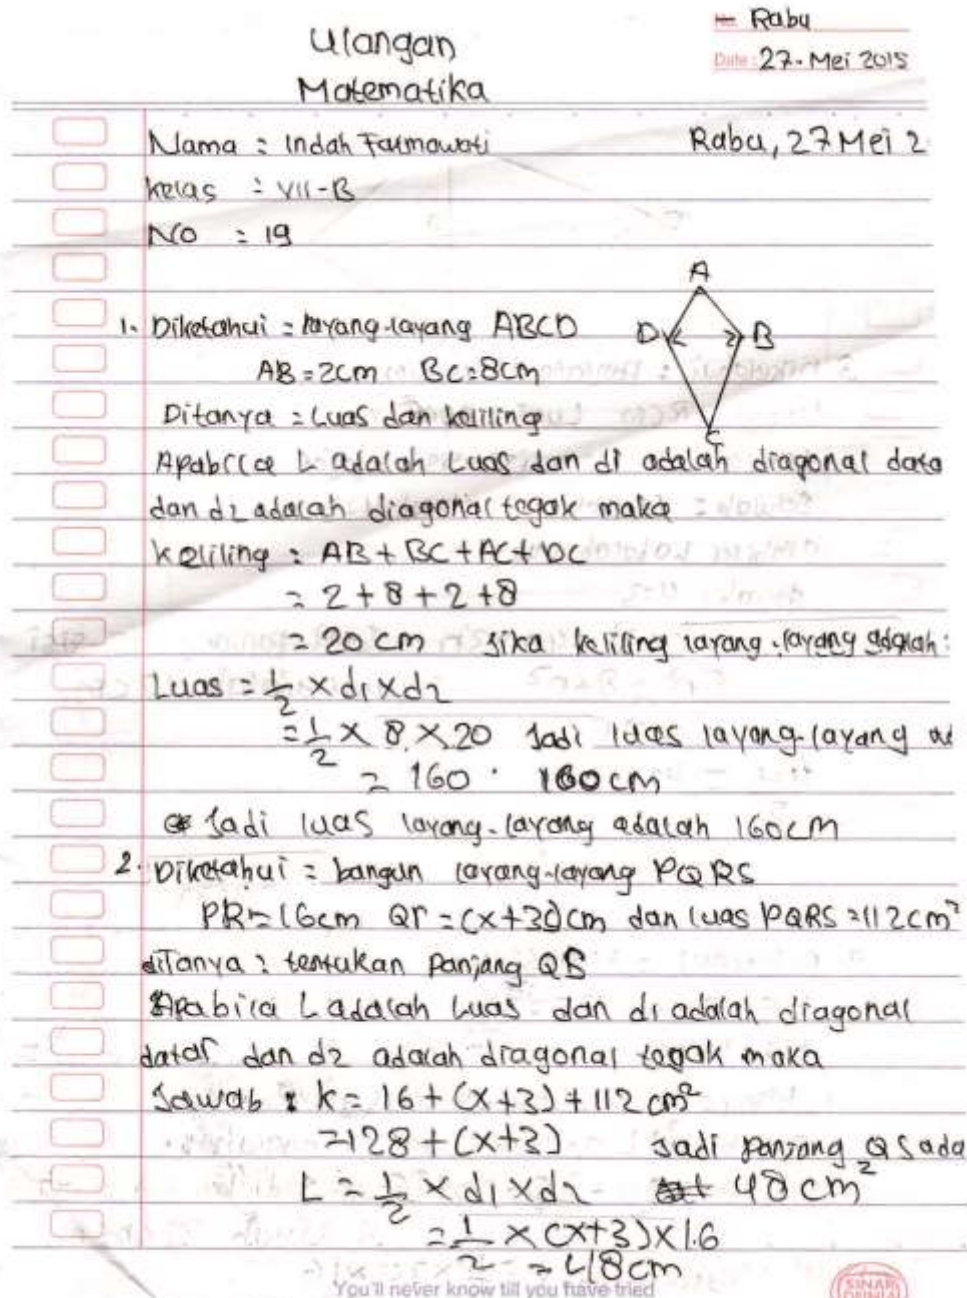 Rabu
Date: 27. Mei 2015
Ulangan
Matematika
Nama : Indah Fatmawati
Rabu, 27 Mei 2
Kelas : VII-B
NO : 19
A
D B
C
1. Diketahui = layang-layang ABCD
AB=2cm BC=8cm
Ditanya = Luas dan keliling
Apabila L adalah Luas dan d1 adalah diagonal data
dan d2 adalah diagonal tegak maka
Keliling : AB+BC+AC+DC
= 2+8+2+8
= 20 cm Jika keliling layang-layang adalah:
Luas = 1/2 × d1 × d2
= 1/2 × 8 × 20 Jadi luas layang-layang ad
= 160 . 160 cm
Jadi luas layang-layang adalah 160cm
2. Diketahui = bangun layang-layang PQRS
PR=16cm Qr=(x+3)cm dan luas PQRS=112cm²
diTanya : tentukan panjang QS
Apabila L adalah Luas dan d1 adalah diagonal
datar dan d2 adalah diagonal tegak maka
Jawab : K= 16+(x+3)+112 cm²
=128+(x+3) Jadi panjang QS ada
L = 1/2 × d1 × d2 48 cm²
= 1/2 × (x+3)×16
= 48cm
You'll never know till you have tried
SINAR DUNIA